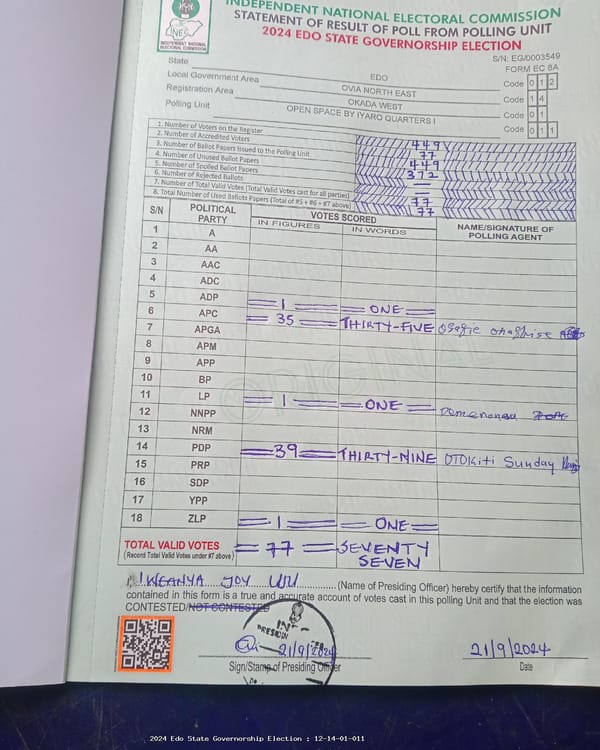 INEC
INDEPENDENT NATIONAL ELECTORAL COMMISSION
INDEPENDENT NATIONAL ELECTORAL COMMISSION
STATEMENT OF RESULT OF POLL FROM POLLING UNIT
2024 EDO STATE GOVERNORSHIP ELECTION
S/N: EG/0003549
FORM EC 8A
State EDO
Local Government Area OVIA NORTH EAST Code 0 1 2
Registration Area OKADA WEST Code 1 4
Polling Unit OPEN SPACE BY IYARO QUARTERS I Code 0 1
Code 0 1 1
1. Number of Voters on the Register 449
2. Number of Accredited Voters 77
3. Number of Ballot Papers Issued to the Polling Unit 449
4. Number of Unused Ballot Papers 372
5. Number of Spoiled Ballot Papers —
6. Number of Rejected Ballots —
7. Number of Total Valid Votes (Total Valid Votes cast for all parties) 77
8. Total Number of Used Ballots Papers (Total of #5 + #6 + #7 above) 77
S/N POLITICAL PARTY VOTES SCORED NAME/SIGNATURE OF POLLING AGENT
IN FIGURES IN WORDS
1 A
2 AA
3 AAC
4 ADC
5 ADP 1 ONE
6 APC 35 THIRTY-FIVE Osagie
7 APGA
8 APM
9 APP
10 BP
11 LP 1 ONE
12 NNPP
13 NRM
14 PDP 39 THIRTY-NINE OTOKITI Sunday
15 PRP
16 SDP
17 YPP
18 ZLP 1 ONE
TOTAL VALID VOTES 77 SEVENTY SEVEN
(Record Total Valid Votes under #7 above)
JOY (Name of Presiding Officer) hereby certify that the information
contained in this form is a true and accurate account of votes cast in this polling Unit and that the election was
CONTESTED/NOT CONTESTED
21/9/2024 21/9/2024
Sign/Stamp of Presiding Officer Date
2024 Edo State Governorship Election : 12-14-01-011